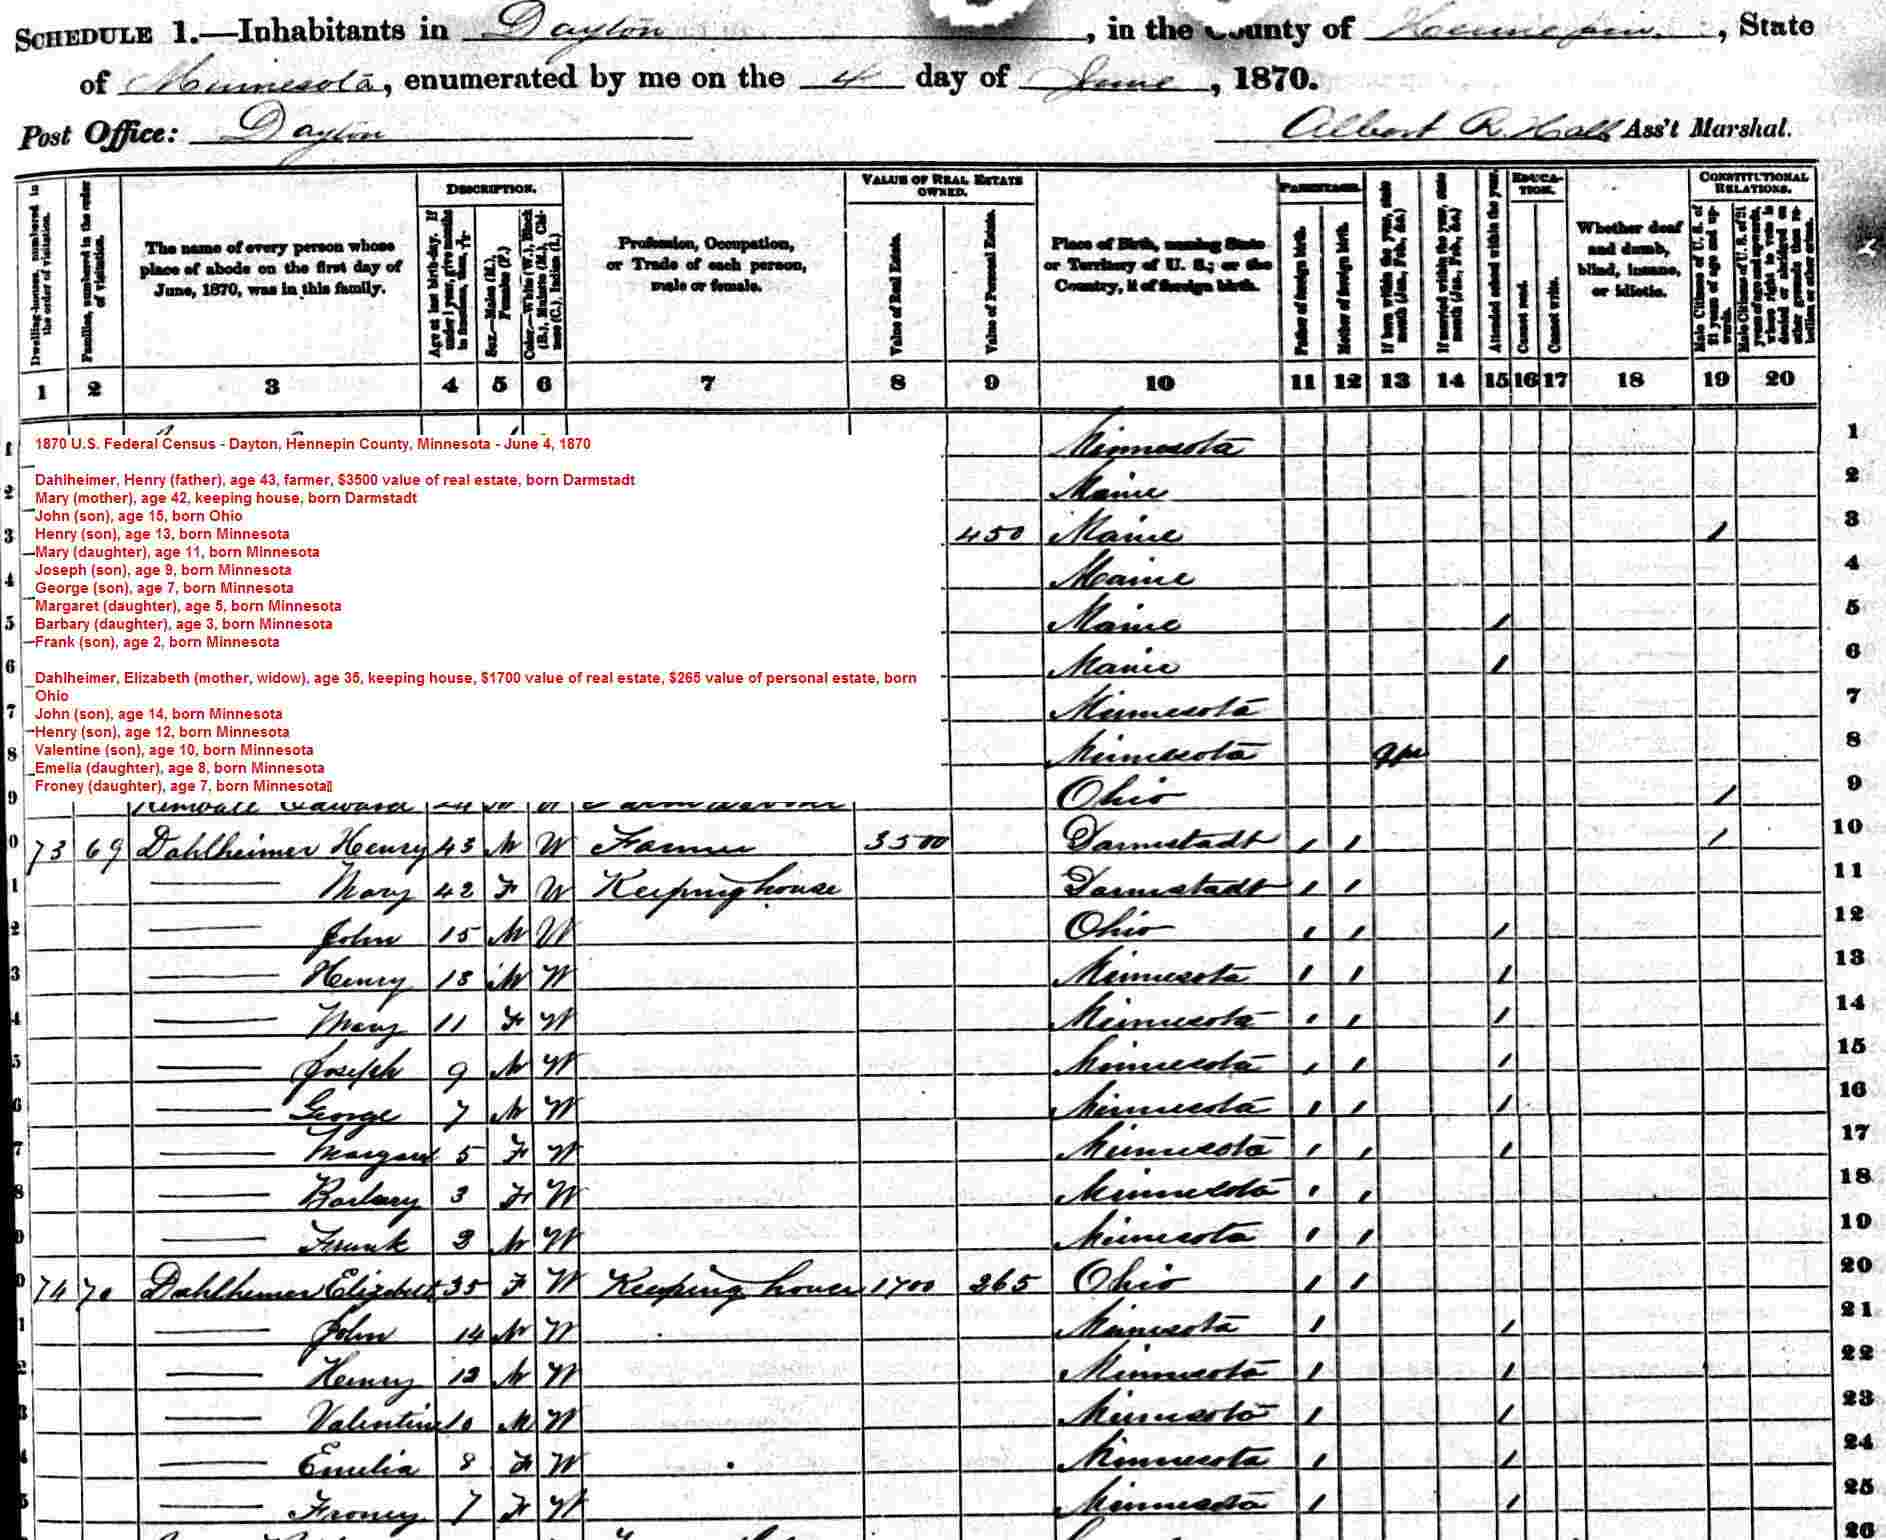 SCHEDULE 1.—Inhabitants in Dayton, in the County of Hennepin, State
of Minnesota, enumerated by me on the 4 day of June, 1870.
Post Office: Dayton
Albert R. Hall Ass't Marshal.
Dwelling-houses, numbered in the order of visitation.
Families, numbered in the order of visitation.
The name of every person whose place of abode on the first day of June, 1870, was in this family.
DESCRIPTION.
Age at last birth-day. If under 1 year, give months in fractions, thus, 3/12.
Sex.—Males (M.), Females (F.)
Color.—White (W.), Black (B.), Mulatto (M.), Chinese (C.), Indian (I.)
Profession, Occupation, or Trade of each person, male or female.
VALUE OF REAL ESTATE OWNED.
Value of Real Estate.
Value of Personal Estate.
Place of Birth, naming State or Territory of U. S.; or the Country, if of foreign birth.
PARENTAGE.
Father of foreign birth.
Mother of foreign birth.
If born within the year, state month (Jan., Feb., &c.)
If married within the year, state month (Jan., Feb., &c.)
Attended school within the year.
EDUCATION.
Cannot read.
Cannot write.
Whether deaf and dumb, blind, insane, or idiotic.
CONSTITUTIONAL RELATIONS.
Male Citizens of U. S. of 21 years of age and upwards.
Male Citizens of U. S. of 21 years of age and upwards, whose right to vote is denied or abridged on other grounds than rebellion or other crime.
1 2 3 4 5 6 7 8 9 10 11 12 13 14 15 16 17 18 19 20
1870 U.S. Federal Census - Dayton, Hennepin County, Minnesota - June 4, 1870
Dahlheimer, Henry (father), age 43, farmer, $3500 value of real estate, born Darmstadt
Mary (mother), age 42, keeping house, born Darmstadt
John (son), age 15, born Ohio
Henry (son), age 13, born Minnesota
Mary (daughter), age 11, born Minnesota
Joseph (son), age 9, born Minnesota
George (son), age 7, born Minnesota
Margaret (daughter), age 5, born Minnesota
Barbary (daughter), age 3, born Minnesota
Frank (son), age 2, born Minnesota
Dahlheimer, Elizabeth (mother, widow), age 35, keeping house, $1700 value of real estate, $265 value of personal estate, born
Ohio
John (son), age 14, born Minnesota
Henry (son), age 12, born Minnesota
Valentine (son), age 10, born Minnesota
Emelia (daughter), age 8, born Minnesota
Froney (daughter), age 7, born Minnesota
1 Minnesota 1
2 Maine 2
3 450 Maine 1 3
4 Maine 4
5 Maine 1 5
6 Maine 1 6
7 Minnesota 7
8 Minnesota 8
9 Ohio 1 9
0 73 69 Dahlheimer Henry 43 M W Farmer 3500 Darmstadt 1 1 1 10
1 Mary 42 F W Keeping house Darmstadt 1 1 11
2 John 15 M W Ohio 1 1 1 12
3 Henry 13 M W Minnesota 1 1 1 13
4 Mary 11 F W Minnesota 1 1 1 14
5 Joseph 9 M W Minnesota 1 1 1 15
6 George 7 M W Minnesota 1 1 1 16
7 Margaret 5 F W Minnesota 1 1 1 17
8 Barbary 3 F W Minnesota 1 1 18
9 Frank 2 M W Minnesota 1 1 19
0 74 70 Dahlheimer Elizabeth 35 F W Keeping house 1700 265 Ohio 1 1 20
1 John 14 M W Minnesota 1 1 21
2 Henry 12 M W Minnesota 1 1 22
3 Valentine 10 M W Minnesota 1 1 23
4 Emelia 8 F W Minnesota 1 1 24
5 Froney 7 F W Minnesota 1 1 25
26